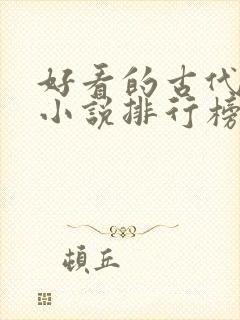 好看的古代
小说排行榜
顿丘